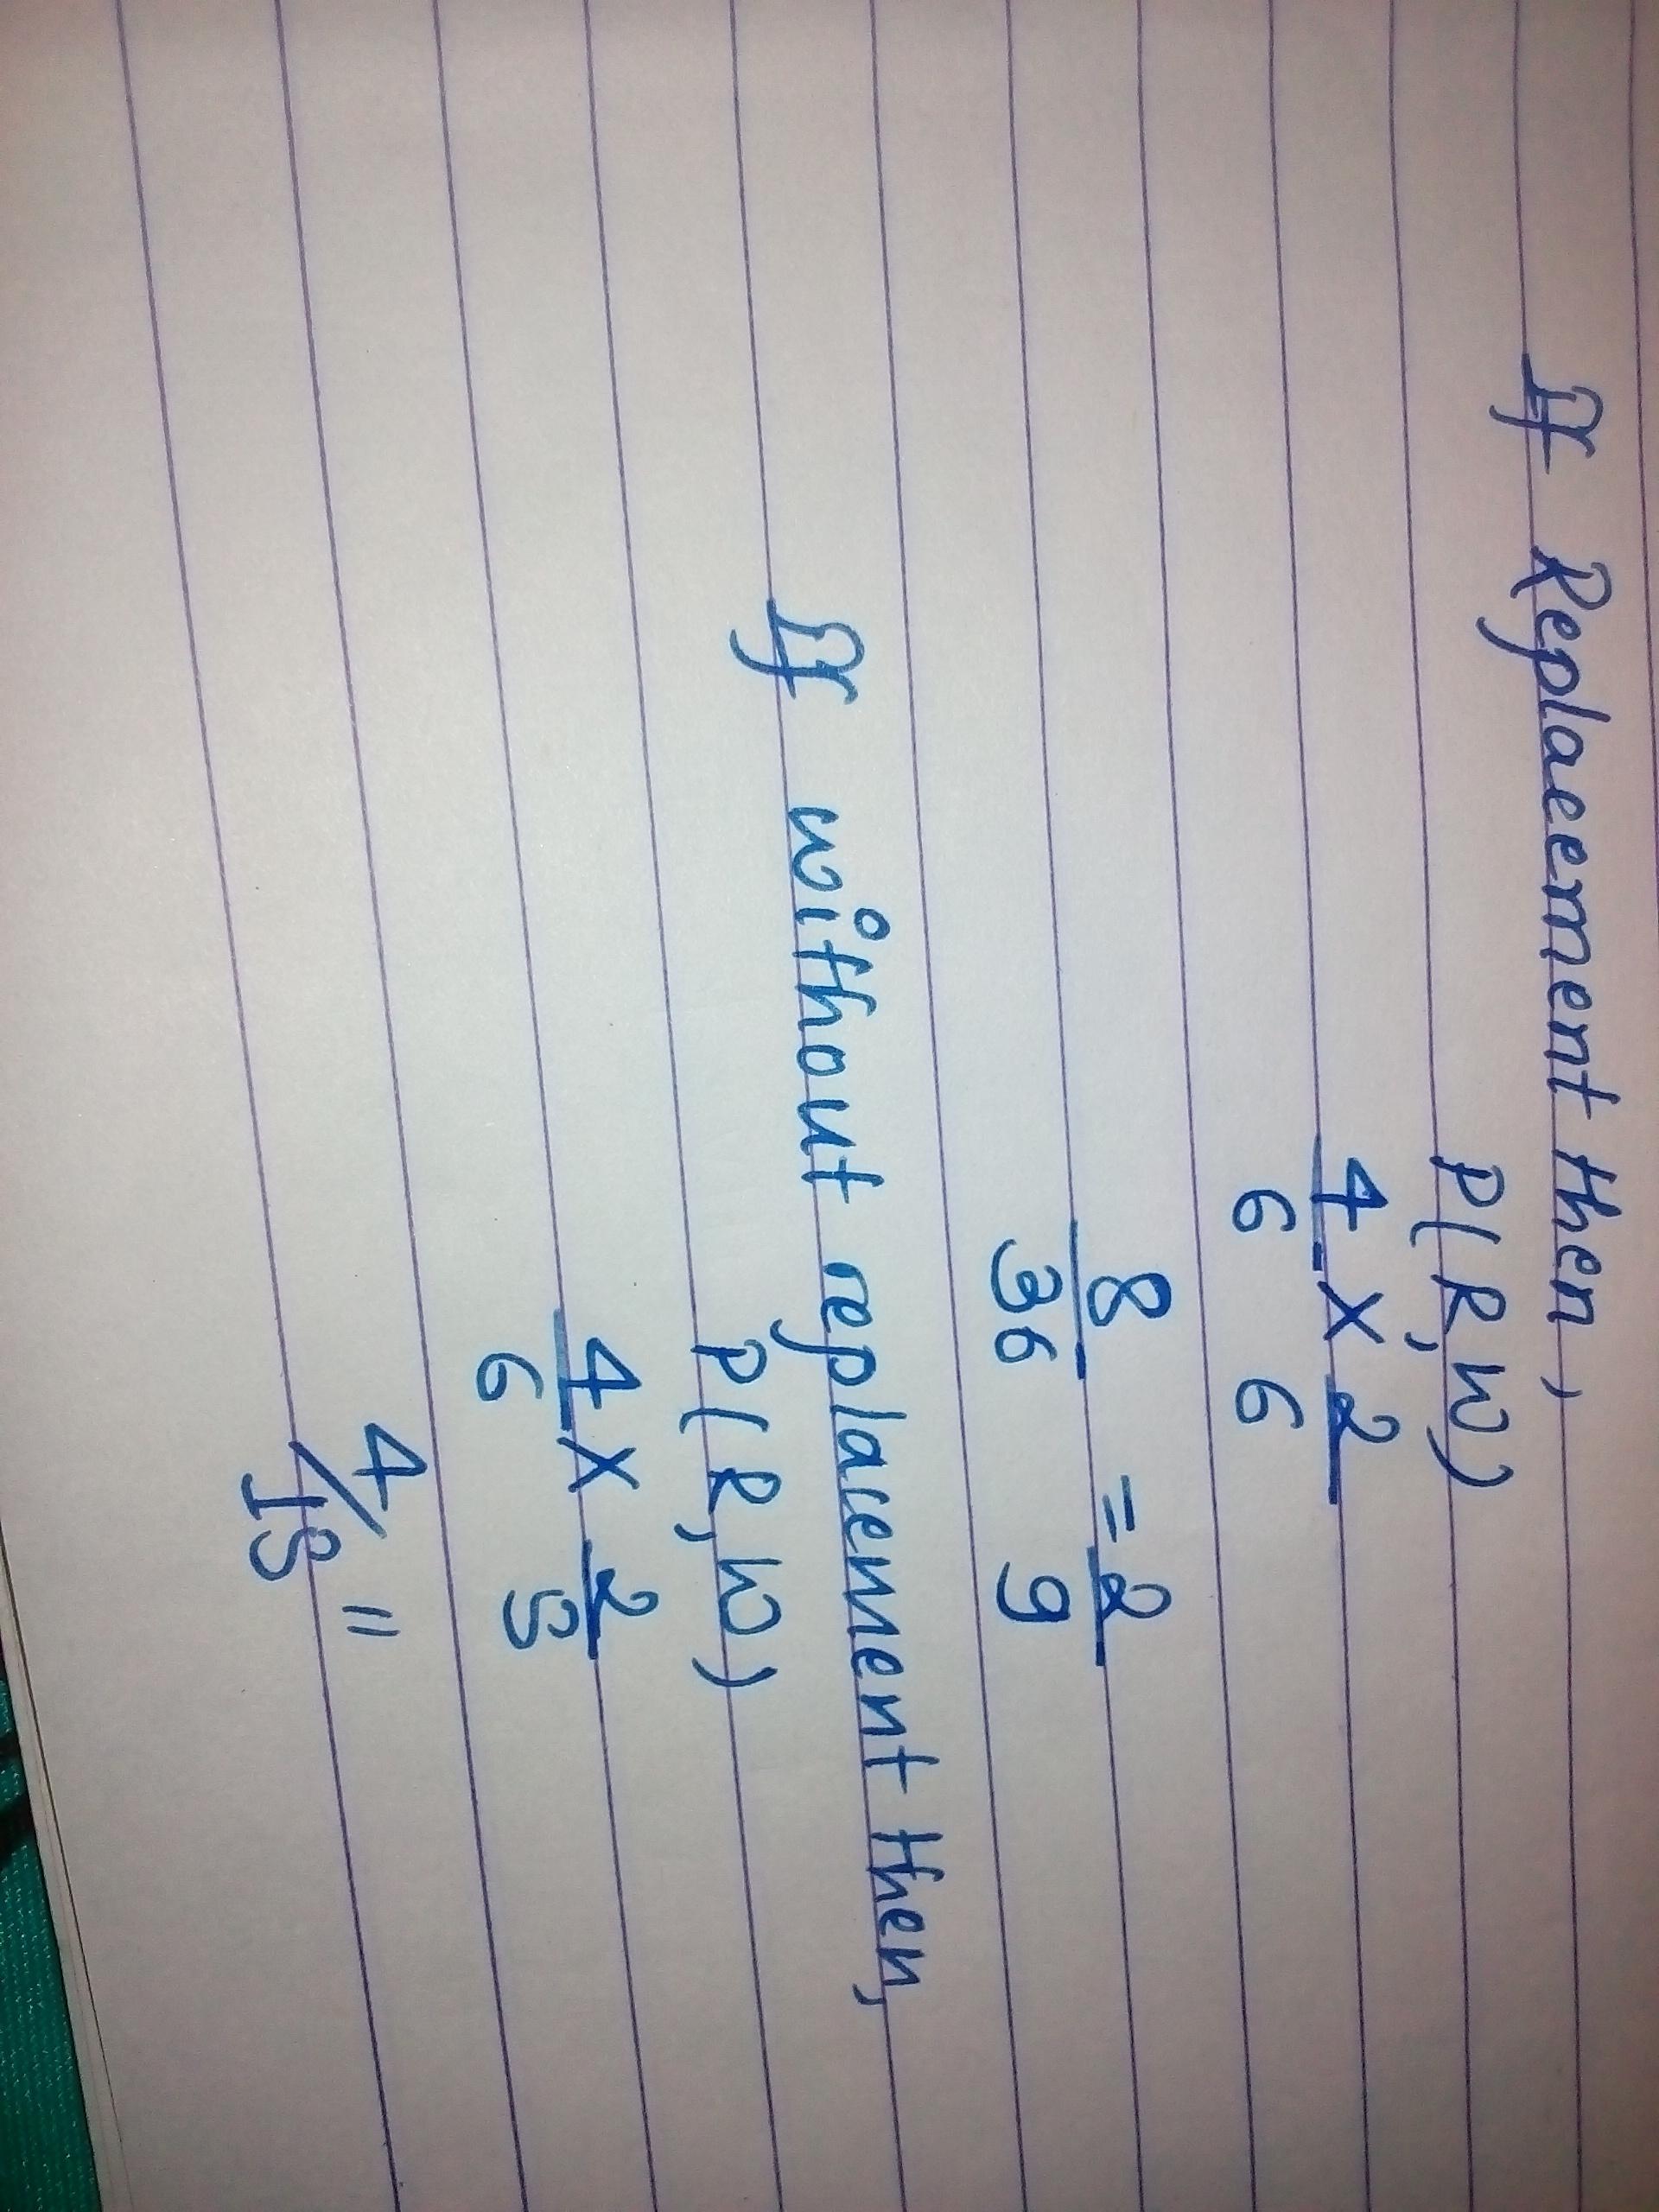 If Replacement then,
P(R,W)
4/6 × 2/6
8/36 = 2/9
If without replacement then,
P(R,W)
4/6 × 2/5
4/15 "